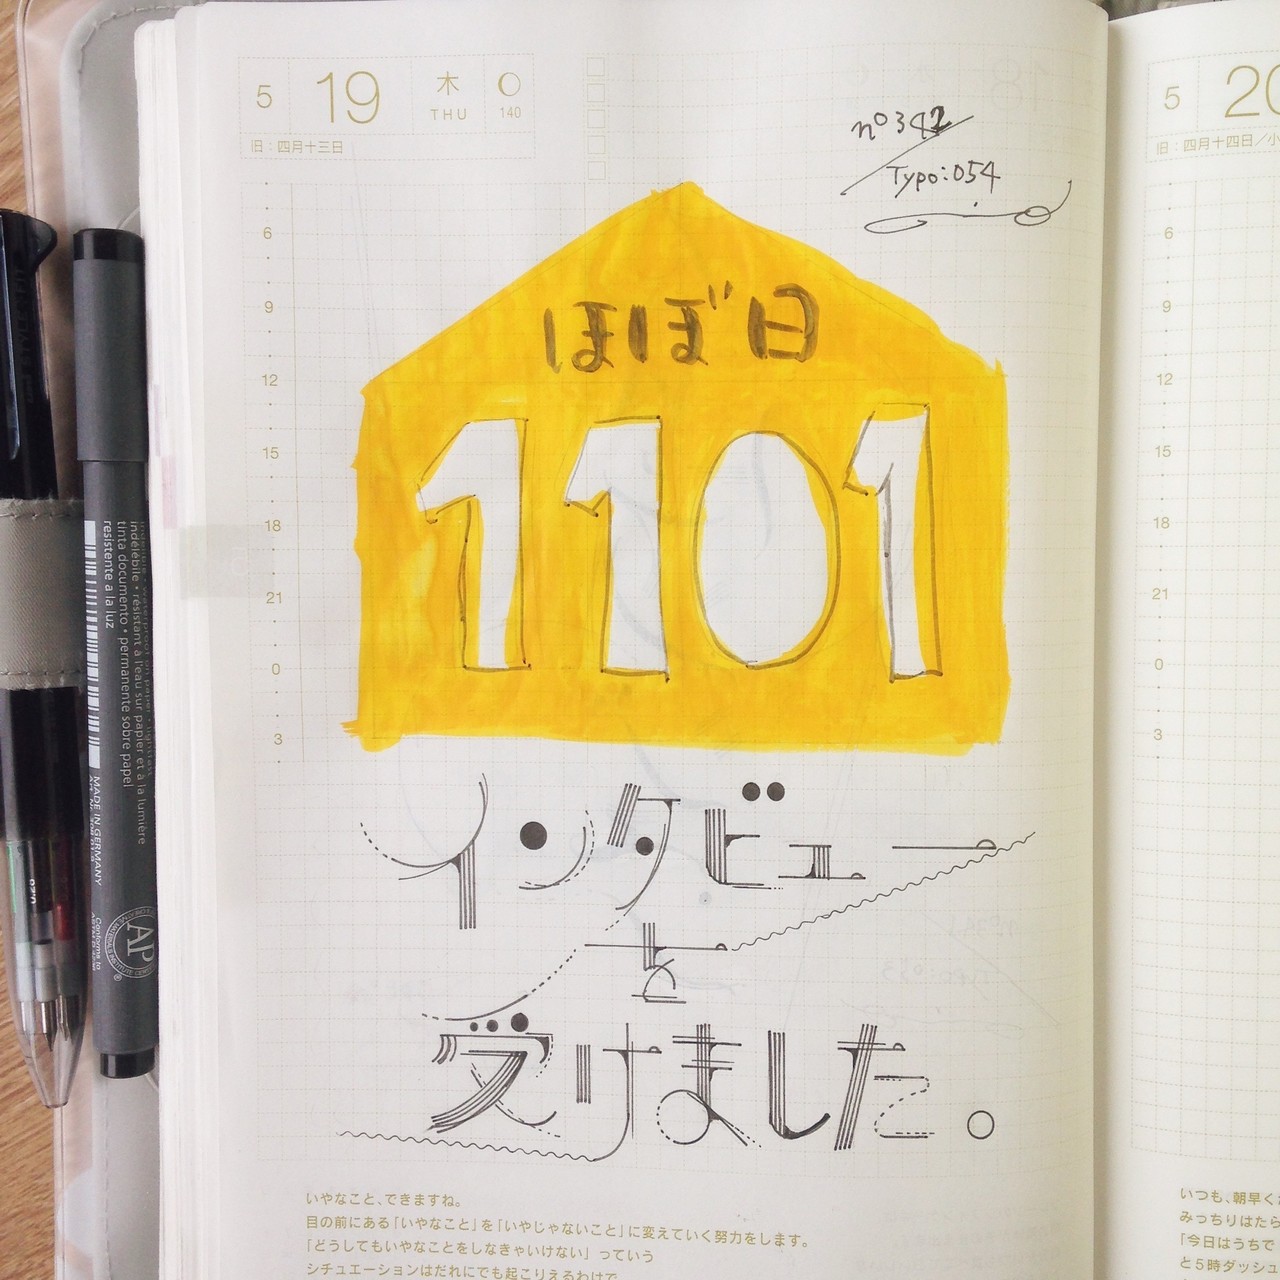 5 19 木 THU 140
旧：四月十三日
nº342
Typo:054
ほぼ日
1101
インタビュー
を
受けました。
6
9
12
15
18
21
0
3
いやなこと、できますね。
目の前にある「いやなこと」を「いやじゃないこと」に変えていく努力をします。
「どうしてもいやなことをしなきゃいけない」っていう
シチュエーションはだれにでも起こりえるわけで
5 20
旧：四月十四日／小
6
9
12
15
18
21
0
3
いつも、朝早く
みっちりはたら
「今日はうちで
と５時ダッシュ
indélébile • résistant à l'eau sur papier et à la lumière
tinta documento • permanente sobre papel
resistente a la luz
MADE IN GERMANY
Conforms to
AP